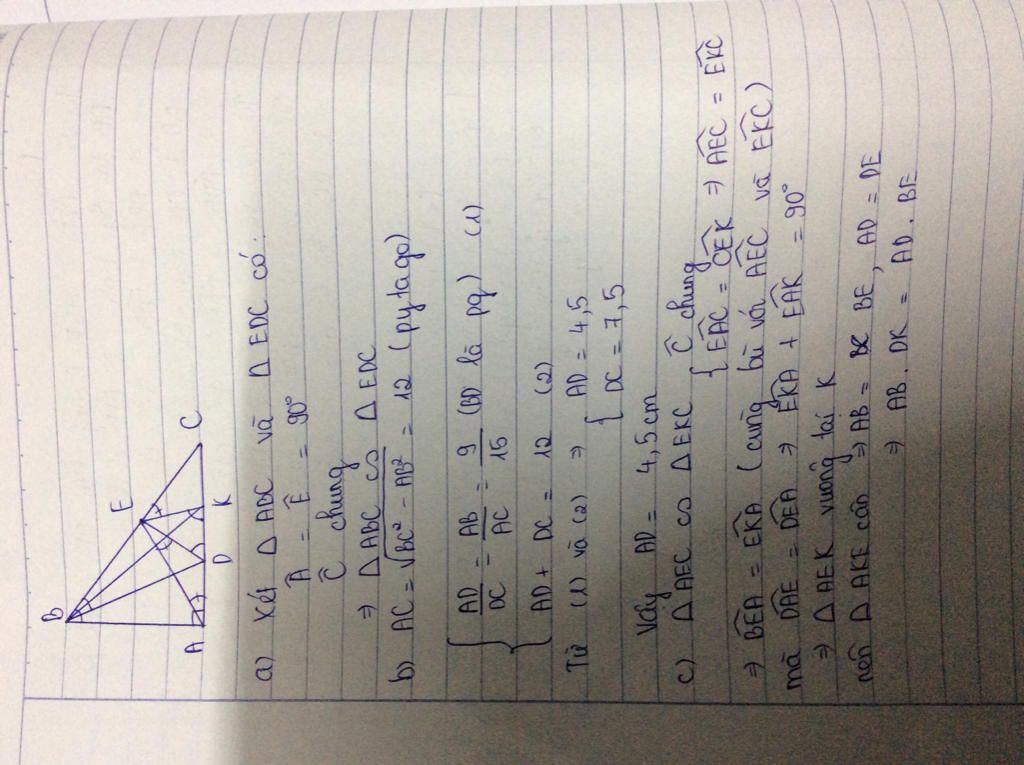 B
E
A
D
K
C
a) Xét △ ABC và △ EDC có:
Â = Ê = 90°
Ĉ chung
⇒ △ABC ∽ △ EDC
b) AC = √(BC² - AB²) = 12 (pytago)
{ AD/DC = AB/AC = 9/15 (BD là pg) (1)
{ AD + DC = 12 (2)
Từ (1) và (2) ⇒ { AD = 4,5
DC = 7,5
Vậy AD = 4,5 cm
c) △ AEC ∽ △ EKC { Ĉ chung
{ EAC = CEK ⇒ AEC = EKC
⇒ BEA = EKA (cùng bù với AEC và EKC)
mà DAE = DEA ⇒ EKA + EAK = 90°
⇒ △ AEK vuông tại K
nên △ AKE cân ⇒ AB = BE, AD = DE
⇒ AB . DK = AD . BE